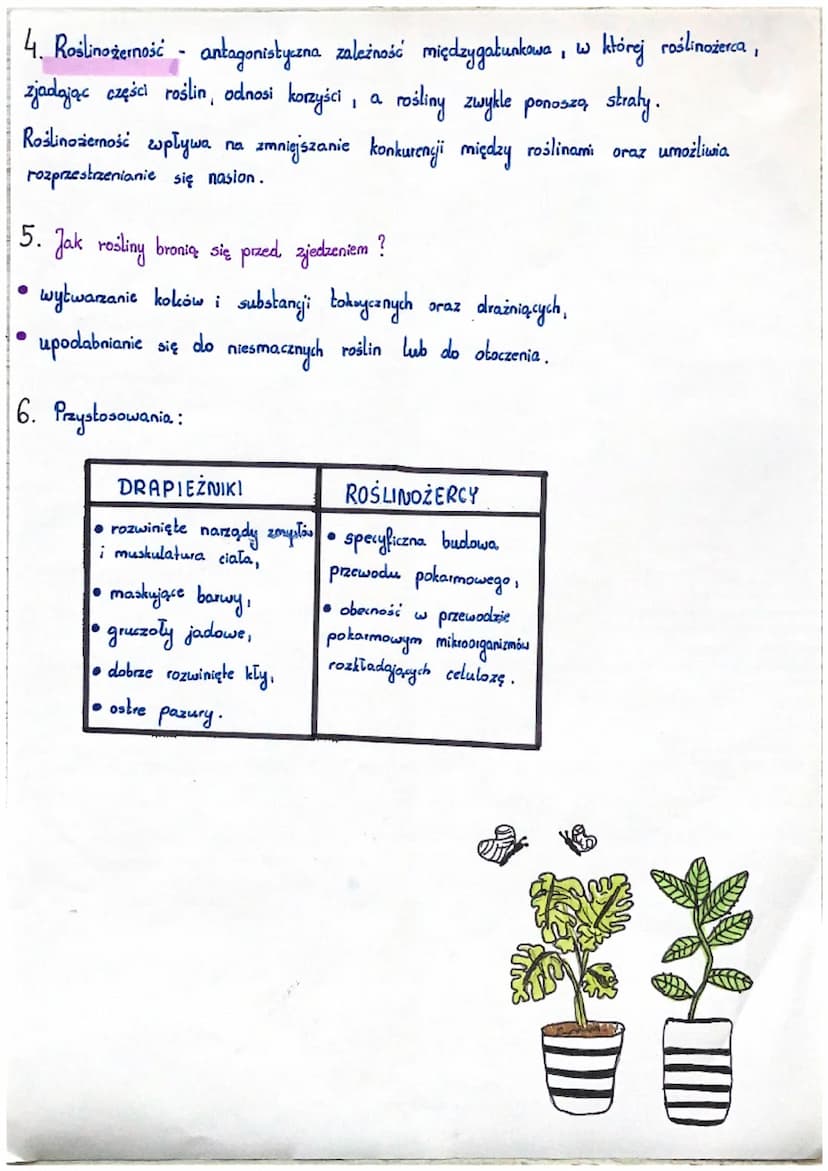 4. Roślinożerność - antagonistyczna zależność międzygatunkowa, w której roślinożerca,
zjadając części roślin, odnosi korzyści, a rośliny zwykle ponoszą straty.
Roślinożerność wpływa na zmniejszanie konkurencji między roślinami oraz umożliwia
rozprzestrzenianie się nasion.
5. Jak rośliny bronią się przed zjedzeniem?
• wytwarzanie kolców i substancji toksycznych oraz drażniących,
• upodabnianie się do niesmacznych roślin lub do otoczenia.
6. Przystosowania:
DRAPIEŻNIKI
• rozwinięte narządy zmysłów
i muskulatura ciała,
• maskujące barwy,
• gruczoły jadowe,
• dobrze rozwinięte kły,
• ostre pazury.
ROŚLINOŻERCY
• specyficzna budowa
przewodu pokarmowego,
• obecność w przewodzie
pokarmowym mikroorganizmów
rozkładających celulozę.